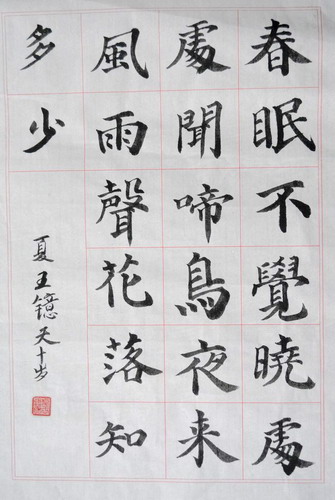 春眠不覺曉處
處聞啼鳥夜来
風雨聲花落知
多少
夏王鐿天十岁